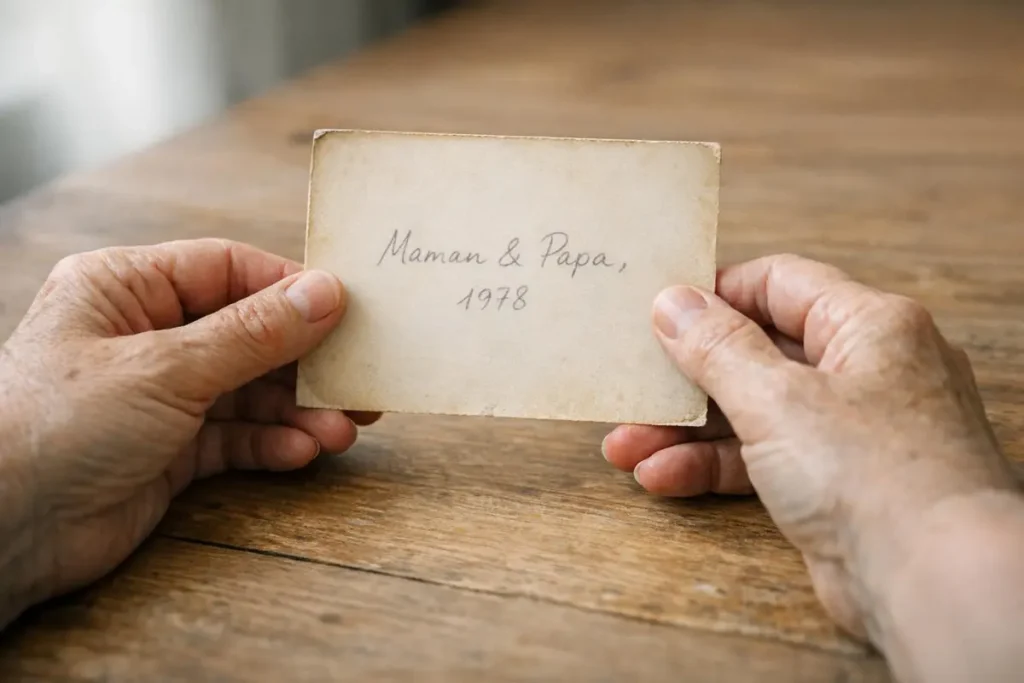 Maman & Papa,
1978